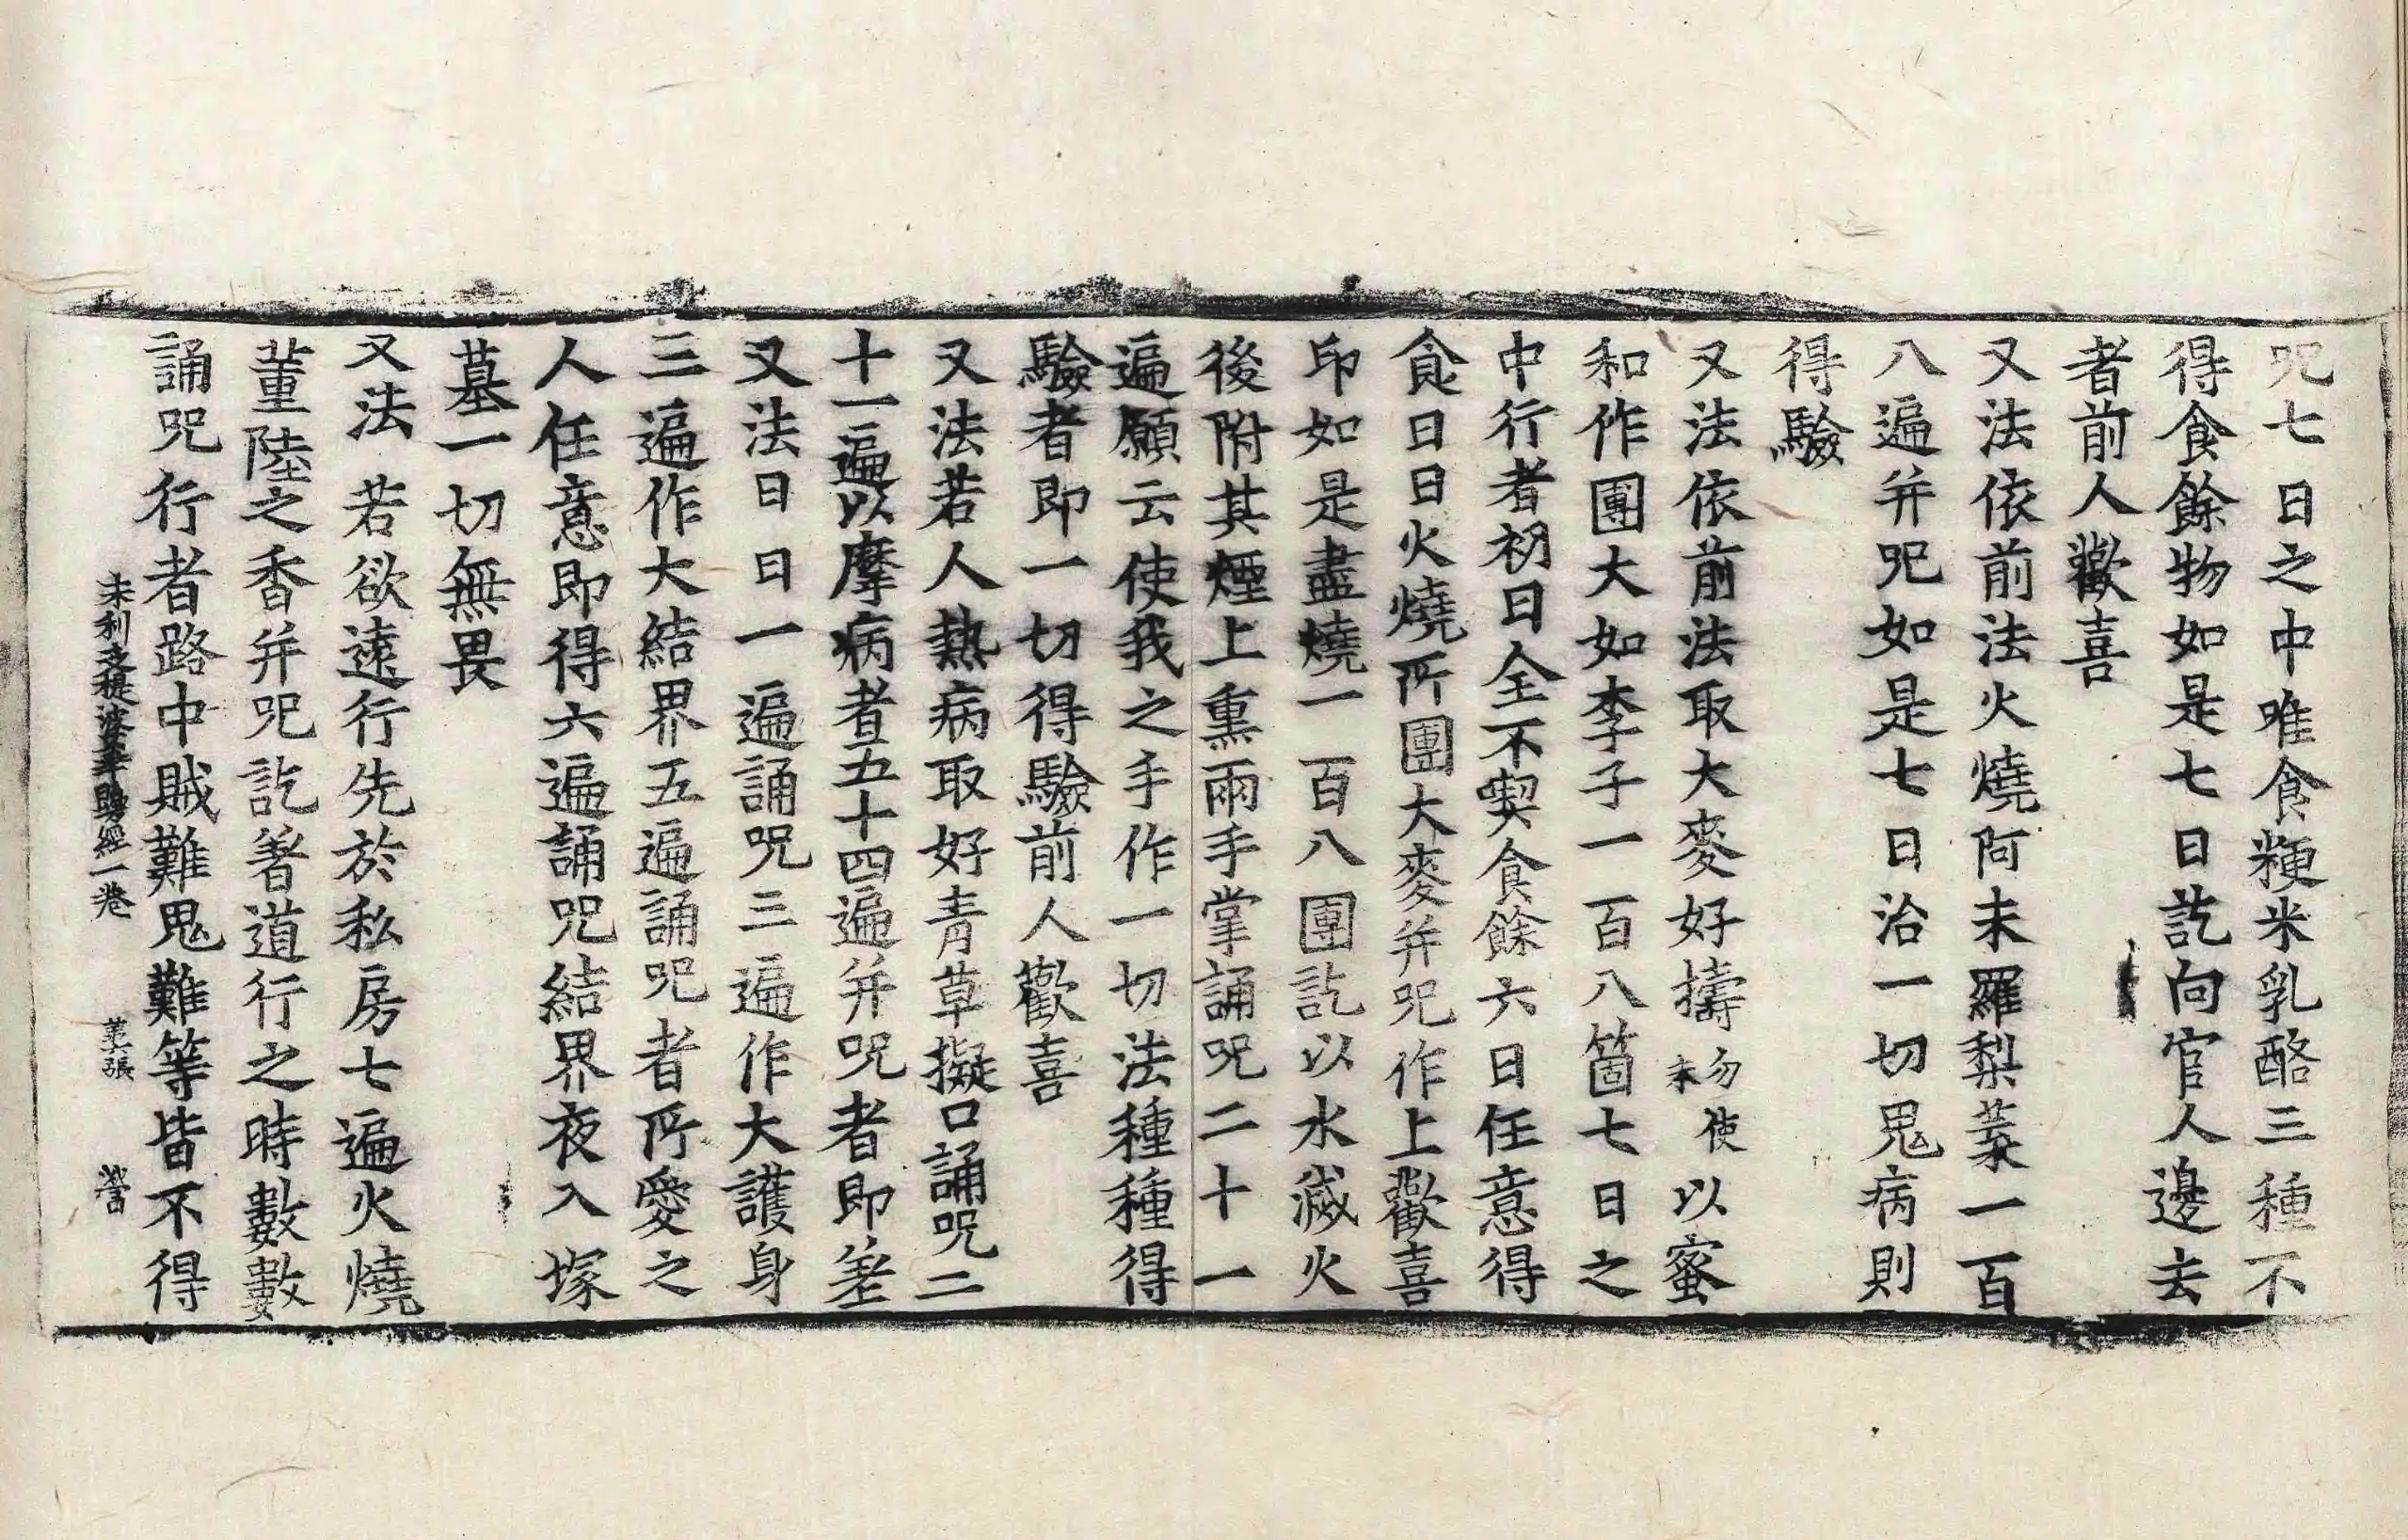 呪七日之中唯食粳米乳酪三種不
得食餘物如是七日訖向官人邊去
者前人歡喜
又法依前法火燒阿末羅梨蒺一百
八遍并呪如是七日治一切鬼病則
得驗
又法依前法取大麥好擣勿使末以蜜
和作團大如李子一百八箇七日之
中行者初日全不喫食餘六日任意得
食日日火燒所團大麥并呪作上歡喜
印如是盡燒一百八團訖以水滅火
後附其煙上熏兩手掌誦呪二十一
遍願云使我之手作一切法種種得
驗者即一切得驗前人歡喜
又法若人熱病取好青草擬口誦呪二
十一遍以摩病者五十四遍并呪者即差
又法日日一遍誦呪三遍作大護身
三遍作大結界五遍誦呪者所愛之
人任意即得六遍誦呪結界夜入塚
墓一切無畏
又法若欲遠行先於私房七遍火燒
薰陸之香并呪訖著道行之時數數
誦呪行者路中賊難鬼難等皆不得
末利支提婆華鬘經一卷 張